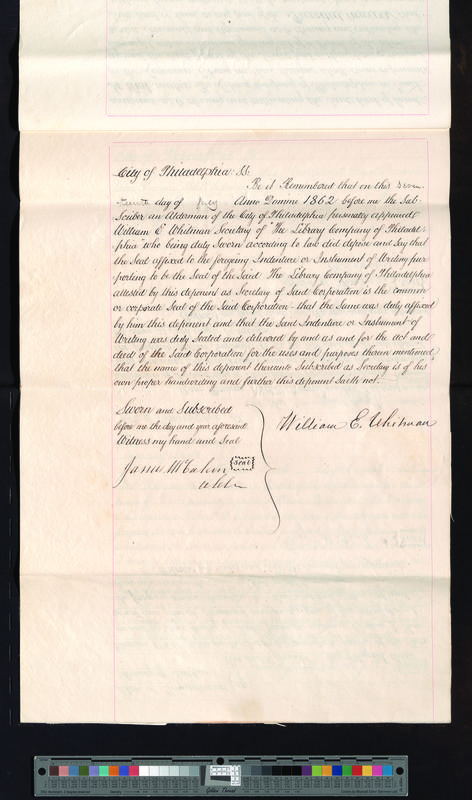 City of Philadelphia SS.
Be it Remembered that on this Seven
teenth day of July Anno Domini 1862 before me the Sub-
scriber an Alderman of the City of Philadelphia personally appeared
William E Whitman Secretary of "The Library Company of Philadel-
phia" who being duly Sworn according to law did depose and Say that
the Seal affixed to the foregoing Indenture or Instrument of Writing pur-
porting to be the Seal of the Said The Library Company of Philadelphia
attested by this deponent as Secretary of Said Corporation is the common
or corporate Seal of the Said Corporation - that the Same was duly affixed
by him this deponent and that the Said Indenture or Instrument of
Writing was duly Sealed and delivered by and as and for the act and
deed of the Said Corporation for the uses and purposes therein mentioned
that the name of this deponent thereunto Subscribed as Secretary is of his
own proper handwriting and further this deponent Saith not.
Sworn and Subscribed
before me the day and year aforesaid
Witness my hand and Seal
William E. Whitman
Seal